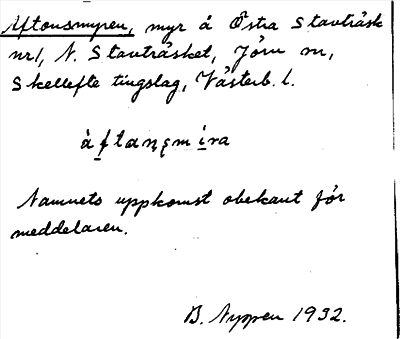 Aftonsmyren, myr å Östra Stavträsk
nr1, N. Stavträsket, Jörn sn,
Skellefte tingslag, Västerb. l.
áftanęmira
Namnets uppkomst obekant för
meddelaren.
B. Nyppen 1932.